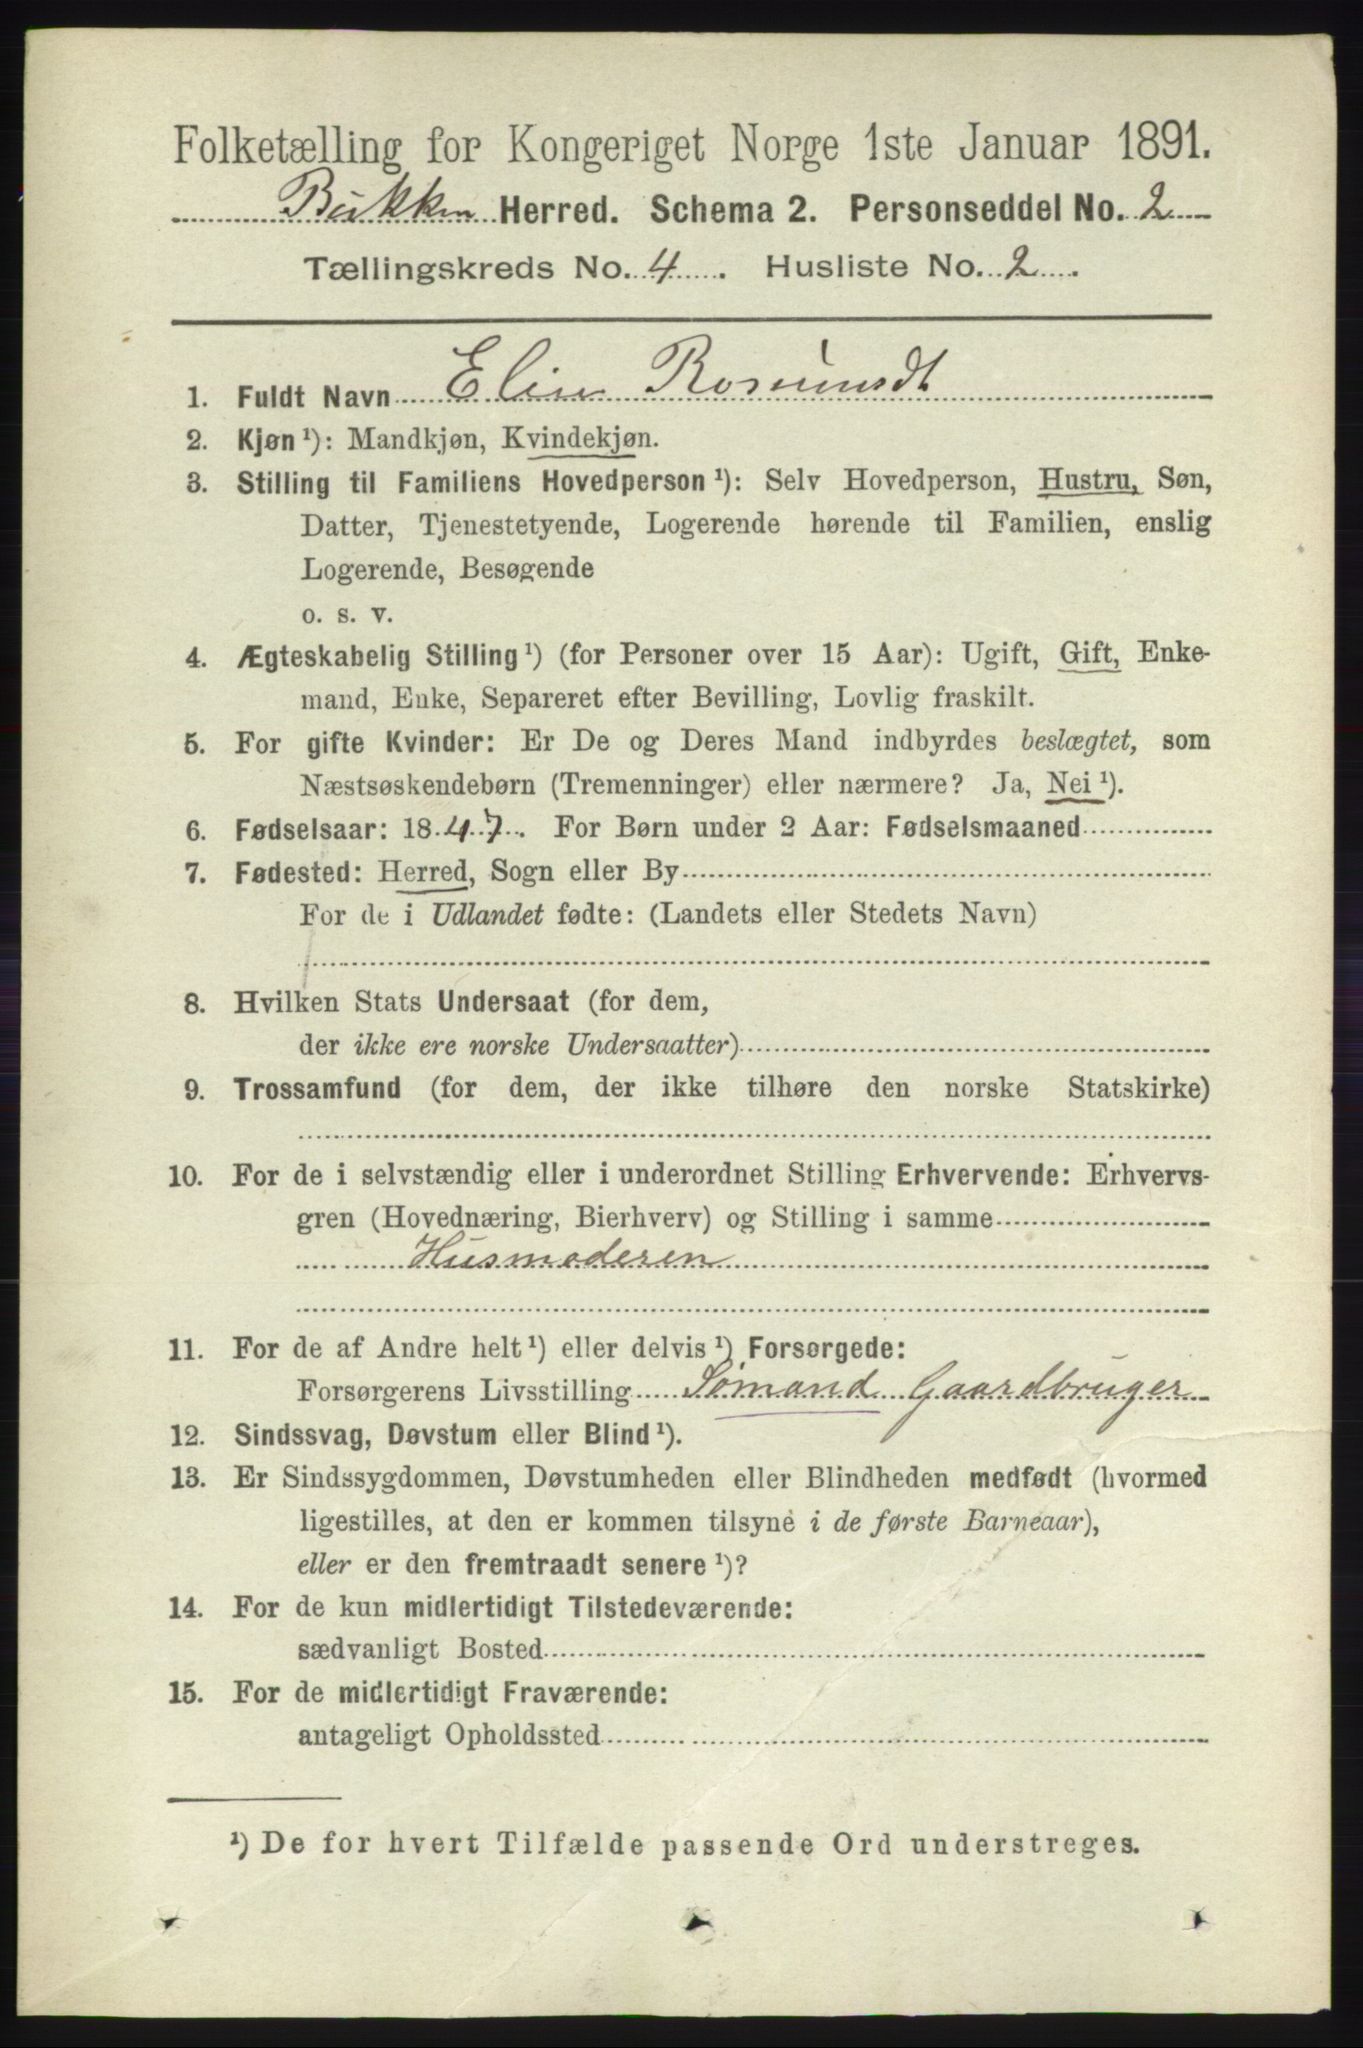 Folketælling for Kongeriget Norge 1ste Januar 1891.
Bukken Herred. Schema 2. Personseddel No. 2
Tællingskreds No. 4. Husliste No. 2.
1. Fuldt Navn Elin Rosundt
2. Kjøn ¹): Mandkjøn, Kvindekjøn.
3. Stilling til Familiens Hovedperson ¹): Selv Hovedperson, Hustru, Søn,
Datter, Tjenestetyende, Logerende hørende til Familien, enslig
Logerende, Besøgende
o. s. v.
4. Ægteskabelig Stilling ¹) (for Personer over 15 Aar): Ugift, Gift, Enke-
mand, Enke, Separeret efter Bevilling, Lovlig fraskilt.
5. For gifte Kvinder: Er De og Deres Mand indbyrdes beslægtet, som
Næstsøskendebørn (Tremenninger) eller nærmere? Ja, Nei ¹).
6. Fødselsaar: 1847. For Børn under 2 Aar: Fødselsmaaned
7. Fødested: Herred, Sogn eller By
For de i Udlandet fødte: (Landets eller Stedets Navn)
8. Hvilken Stats Undersaat (for dem,
der ikke ere norske Undersaatter)
9. Trossamfund (for dem, der ikke tilhøre den norske Statskirke)
10. For de i selvstændig eller i underordnet Stilling Erhvervende: Erhvervs-
gren (Hovednæring, Bierhverv) og Stilling i samme
Husmoderen
11. For de af Andre helt ¹) eller delvis ¹) Forsørgede:
Forsørgerens Livsstilling Sømand Gaardbruger
12. Sindssvag, Døvstum eller Blind ¹).
13. Er Sindssygdommen, Døvstumheden eller Blindheden medfødt (hvormed
ligestilles, at den er kommen tilsyne i de første Barneaar),
eller er den fremtraadt senere ¹)?
14. For de kun midlertidigt Tilstedeværende:
sædvanligt Bosted
15. For de midlertidigt Fraværende:
antageligt Opholdssted
¹) De for hvert Tilfælde passende Ord understreges.